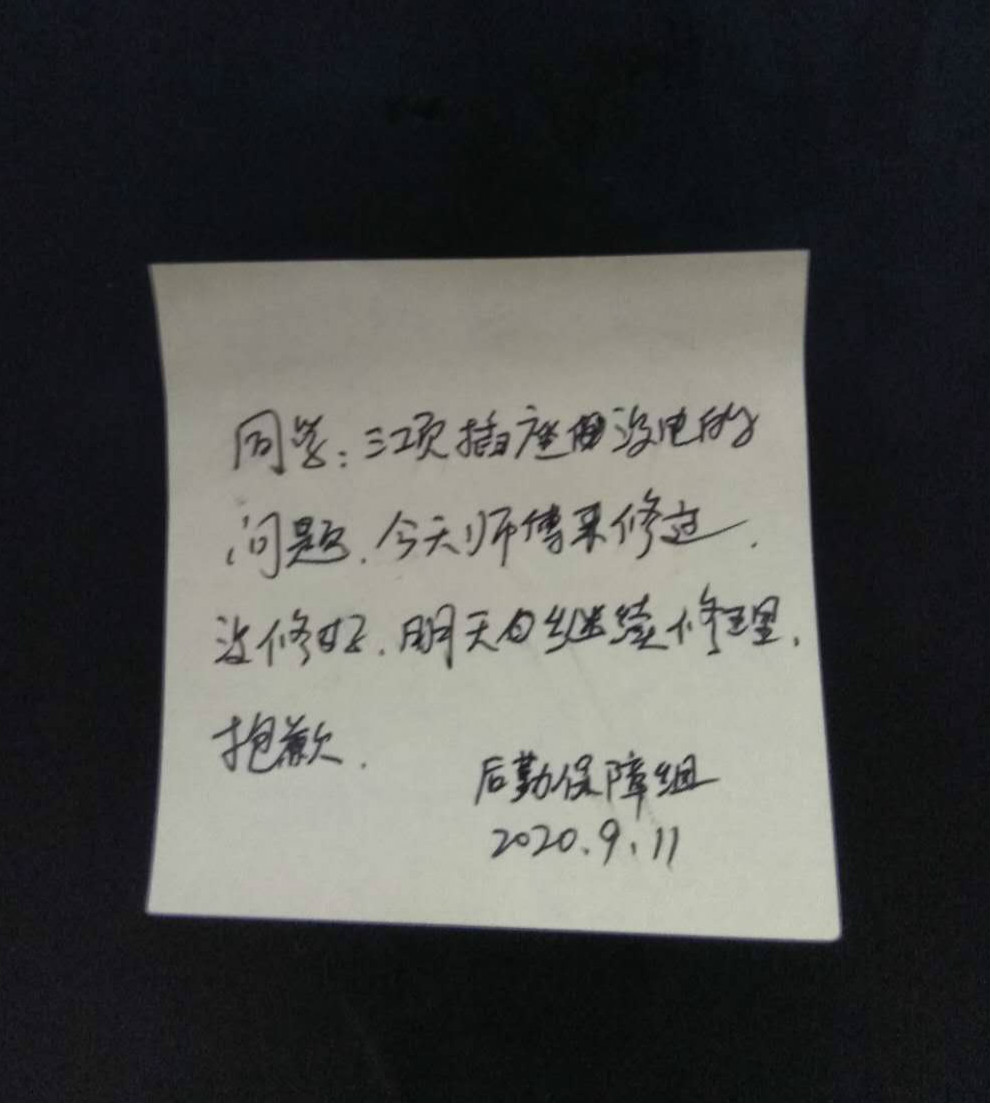 同学：三项插座没电的
问题.今天师傅来修过.
没修好.明天继续修理.
抱歉.
后勤保障组
2020.9.11